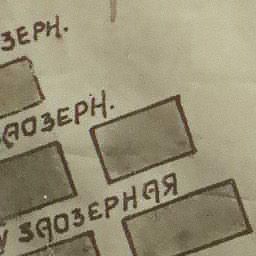 ЗЕРН.
ЗАОЗЕРН.
У ЗАОЗЕРНАЯ